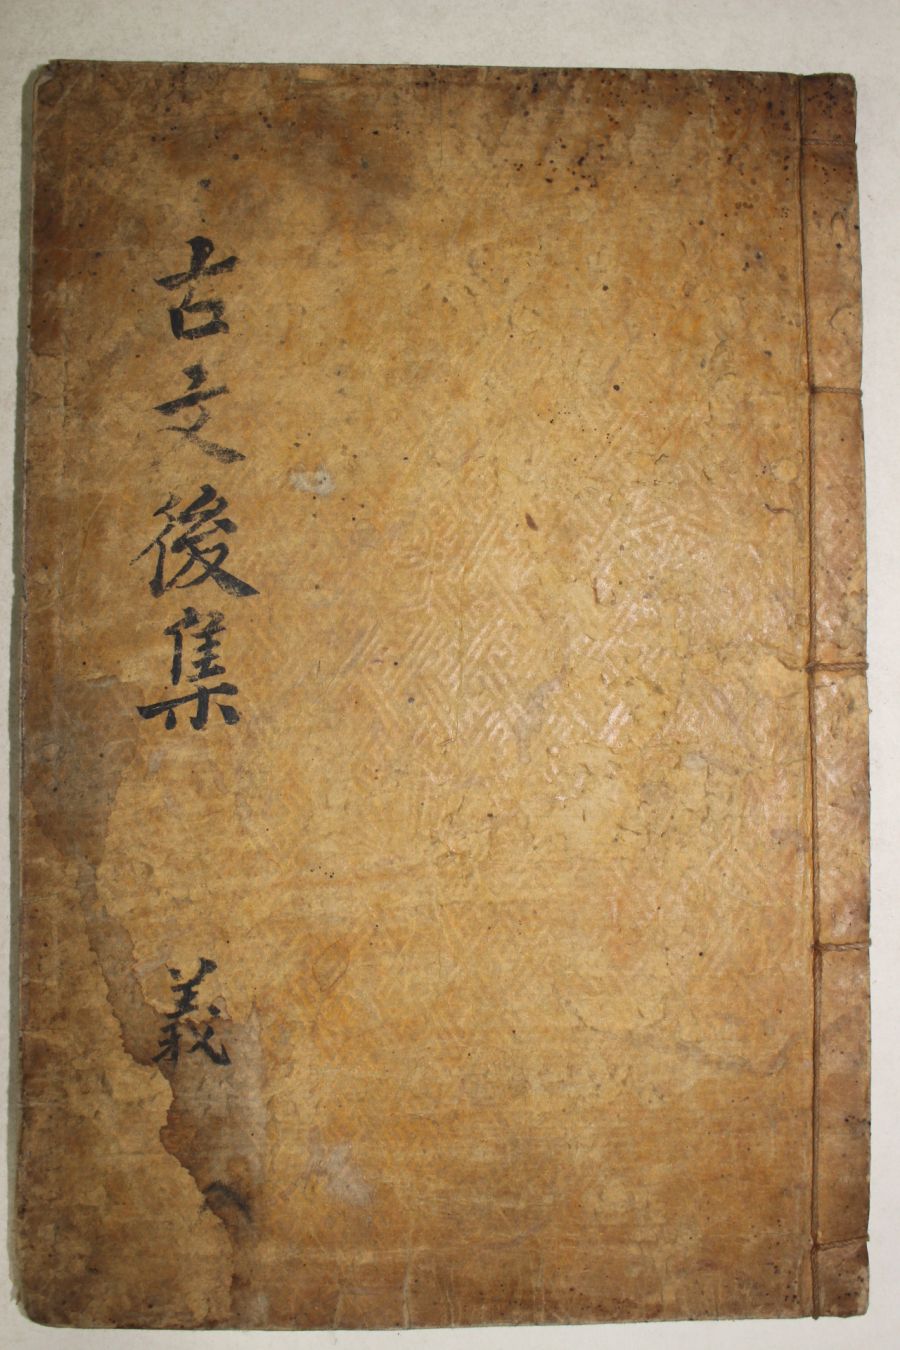 古文後集
義